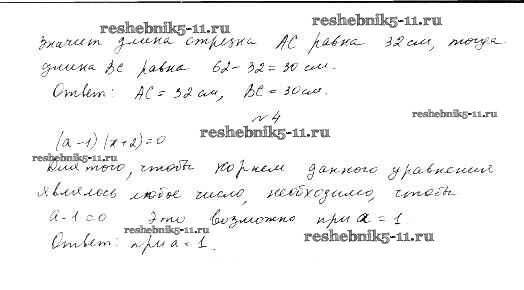 reshebnik5-11.ru reshebnik5-11.ru
значит длина отрезка AC равна 32 см, тогда
длина BC равна 62-32=30 см.
Ответ: AC=32 см, BC=30 см.
reshebnik5-11.ru
№4
(a-1)(x+2)=0 reshebnik5-11.ru
reshebnik5-11.ru
Для того, чтобы корнем данного уравнения
являлось любое число, необходимо, чтобы
a-1=0 Это возможно при a=1.
reshebnik5-11.ru reshebnik5-11.ru
Ответ: при a=1.